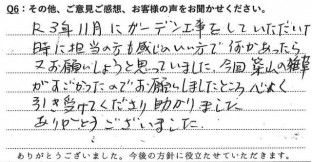 Q6：その他、ご意見ご感想、お客様の声をお聞かせください。
R3年11月にガーデン工事をしていただいた
時に担当の方も感じのいい方で何かあったら
又お願いしようと思っていました。今回築山の雑草
がすごかったのでお願いしましたところ心よく
引き受けてくださり助かりました。
ありがとうございました。
ありがとうございました。今後の方針に役立たせていただきます。